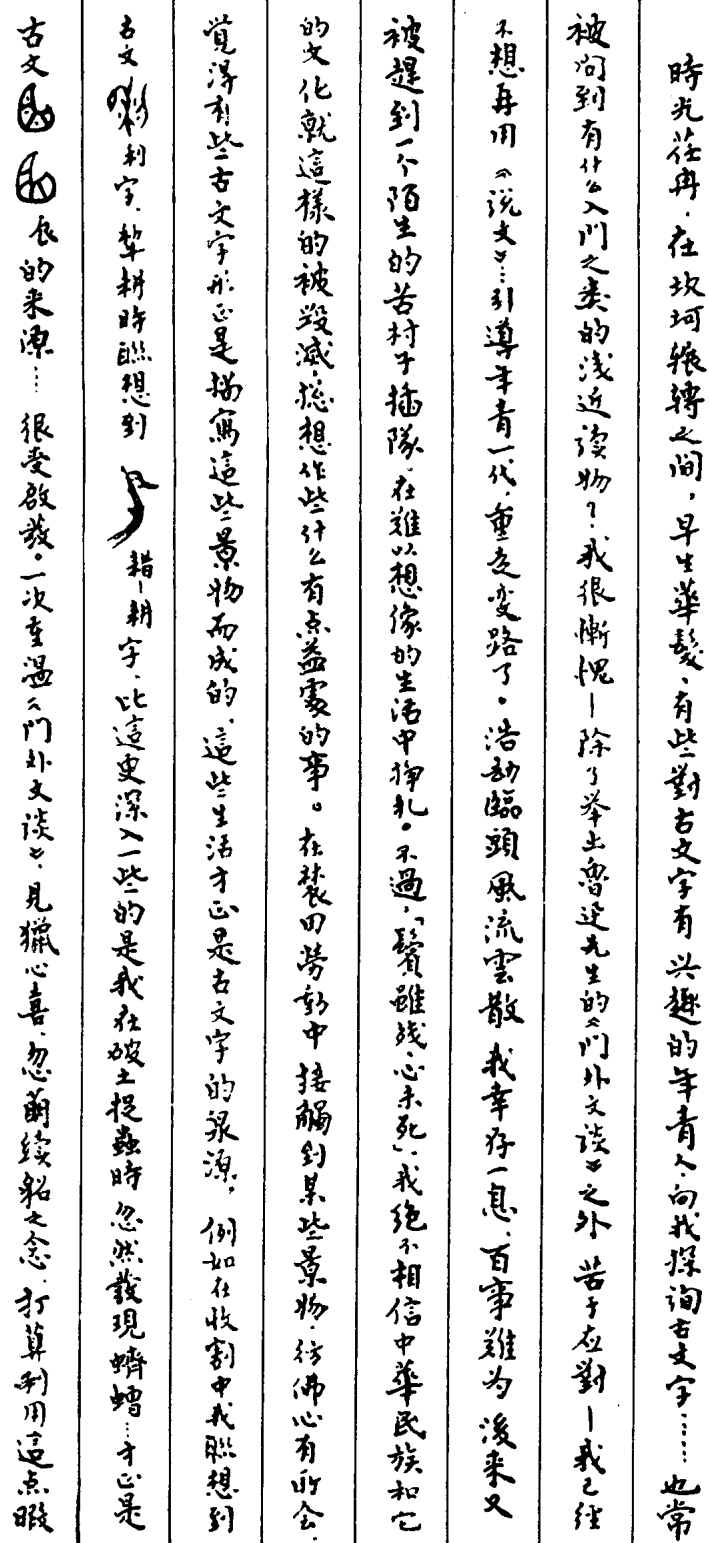 時光荏冉，在坎坷辗轉之间，早生華髮，有些對古文字有兴趣的年青人，向我探询古文字……也常
被问到有什么入门之类的浅近读物？我很慚愧—除了举出魯迅先生的《门外文谈》之外 苦于应對—我已经
不想再用《说文》…引導年青一代，重走变路了。浩劫臨頭 風流雲散 我幸存一息，百事難为 後来又
被趕到一个陌生的苦村子插隊，在難以想像的生活中挣扎。不過，「鬢雖残，心未死」，我绝不相信中華民族和它
的文化就這樣的被毀滅，總想作些什么有点益處的事。在農田勞動中 接觸到某些景物，彷佛心有所会，
覺得有些古文字形正是描寫這些景物而成的，這些生活才正是古文字的泉源，例如在收割中我联想到
古文 利字，犂耕時联想到 耤—耕字，比這更深入一些的是我在破土捉蟲時忽然發現蠐螬…才正是
古文 的来源…… 很受啟發。一次重温《门外文谈》，見獵心喜，忽萌续貂之念，打算利用這点暇